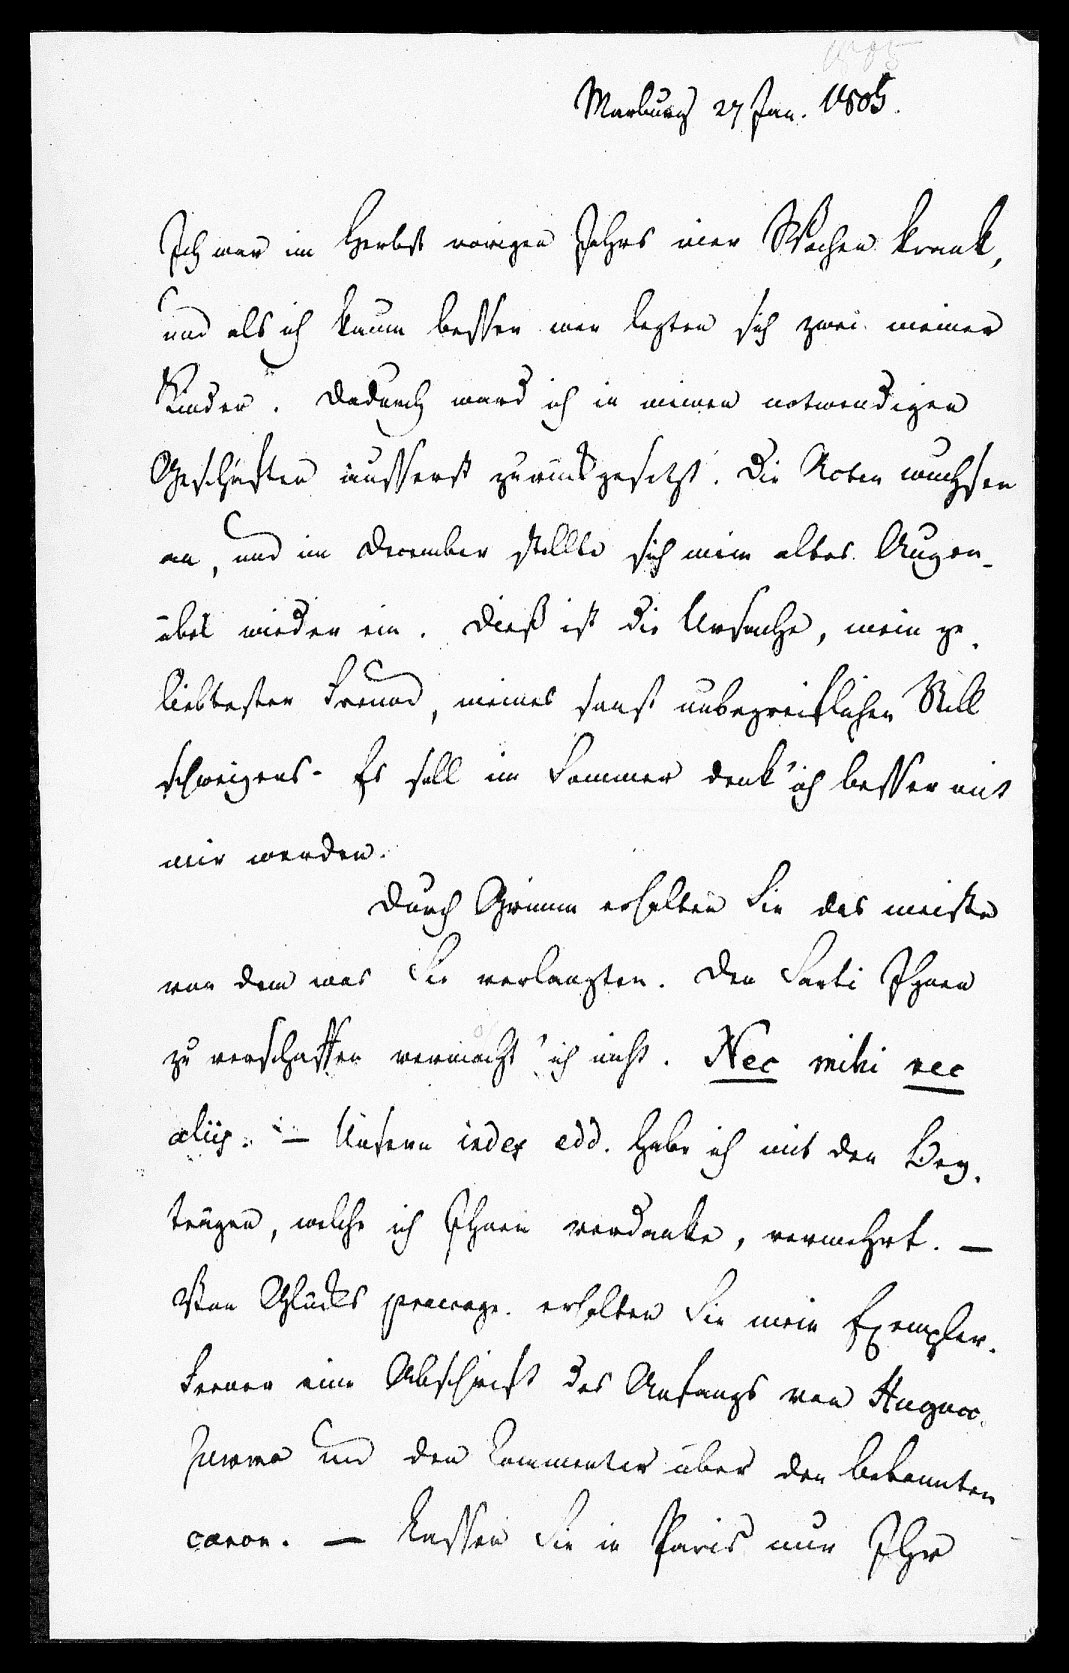 1805
Marburg 27 Jan. 1805.
Ich war im Herbst vorigen Jahrs vier Wochen krank,
und als ich kaum besser war legten sich zwei meiner
Kinder. Dadurch ward ich in meinen notwendigen
Geschäften äusserst zurückgesetzt. Die Acten wuchsen
an, und im December stellte sich mein altes Augen-
übel wieder ein. Dieß ist die Ursache, mein ge-
liebtester Freund, meines sonst unbegreiflichen Still
schweigens. Es soll im Sommer denk' ich besser mit
mir werden.
Durch Grimm erhalten Sie das meiste
von dem was Sie verlangten. Den Sarti Ihnen
zu verschaffen vermocht' ich nicht. Nec mihi nec
aliis. – Unsern index edd. habe ich mit den Bey-
trägen, welche ich Ihnen verdanke, vermehrt. –
Von Glücks praecogn. erhalten Sie mein Exemplar.
Ferner eine Abschrift des Anfangs von Hugucc.
Summa und den Commentar über den bekannten
canon. – Lassen Sie in Paris nur Ihr